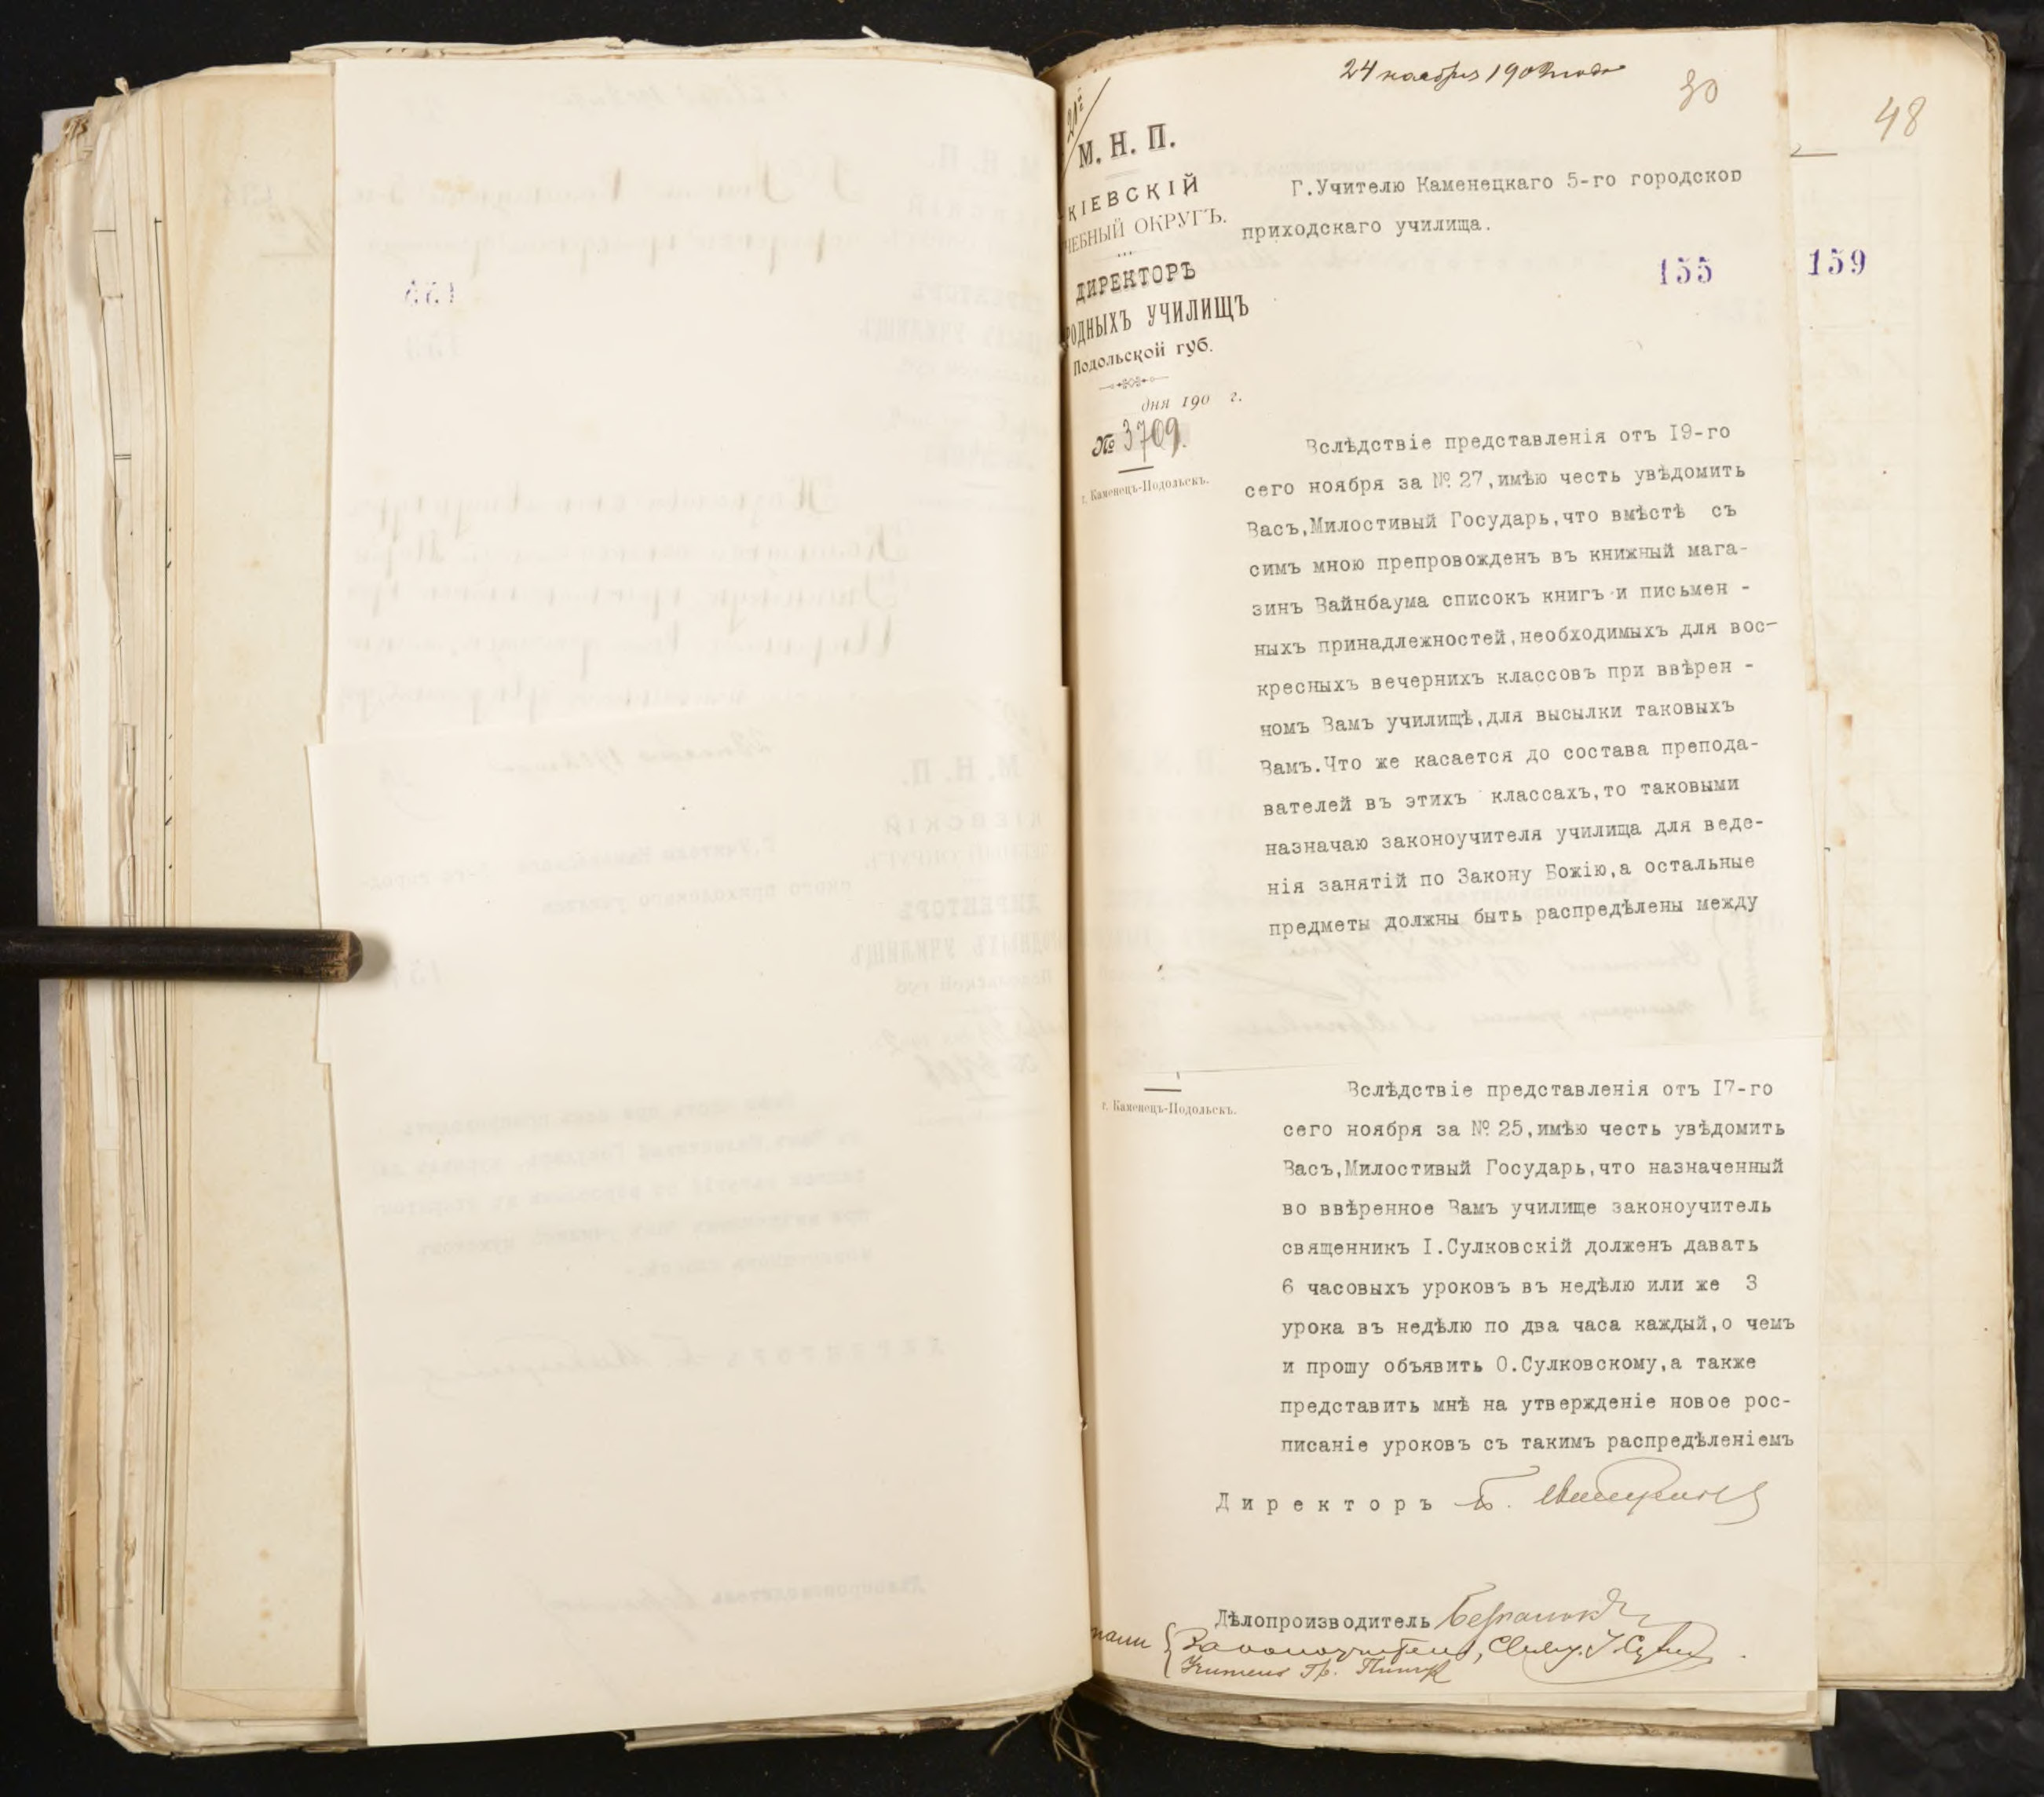 24 ноября 1902 года
30
48
М. Н. П.
КІЕВСКІЙ
ЧЕБНЫЙ ОКРУГЪ.
ДИРЕКТОРЪ
РОДНЫХЪ УЧИЛИЩЪ
Подольской губ.
дня 190 г.
№ 3709.
г. Каменецъ-Подольскъ.
Г.Учителю Каменецкаго 5-го городског
приходскаго училища.
155
159
Вслѣдствіе представленія отъ I9-го
сего ноября за № 27,имѣю честь увѣдомить
Васъ,Милостивый Государь,что вмѣстѣ съ
симъ мною препровожденъ въ книжный мага-
зинъ Вайнбаума списокъ книгъ и письмен -
ныхъ принадлежностей,необходимыхъ для вос-
кресныхъ вечернихъ классовъ при ввѣрен -
номъ Вамъ училищѣ,для высылки таковыхъ
Вамъ.Что же касается до состава препода-
вателей въ этихъ классахъ,то таковыми
назначаю законоучителя училища для веде-
нія занятій по Закону Божію,а остальные
предметы должны быть распредѣлены между
г. Каменецъ-Подольскъ.
Вслѣдствіе представленія отъ I7-го
сего ноября за № 25,имѣю честь увѣдомить
Васъ,Милостивый Государь,что назначенный
во ввѣренное Вамъ училище законоучитель
священникъ I.Сулковскій долженъ давать
6 часовыхъ уроковъ въ недѣлю или же 3
урока въ недѣлю по два часа каждый,о чемъ
и прошу объявить О.Сулковскому,а также
представить мнѣ на утвержденіе новое рос-
писаніе уроковъ съ такимъ распредѣленіемъ
Директоръ
Дѣлопроизводитель
Законоучитель, Свящ. I.
Учитель Гр.